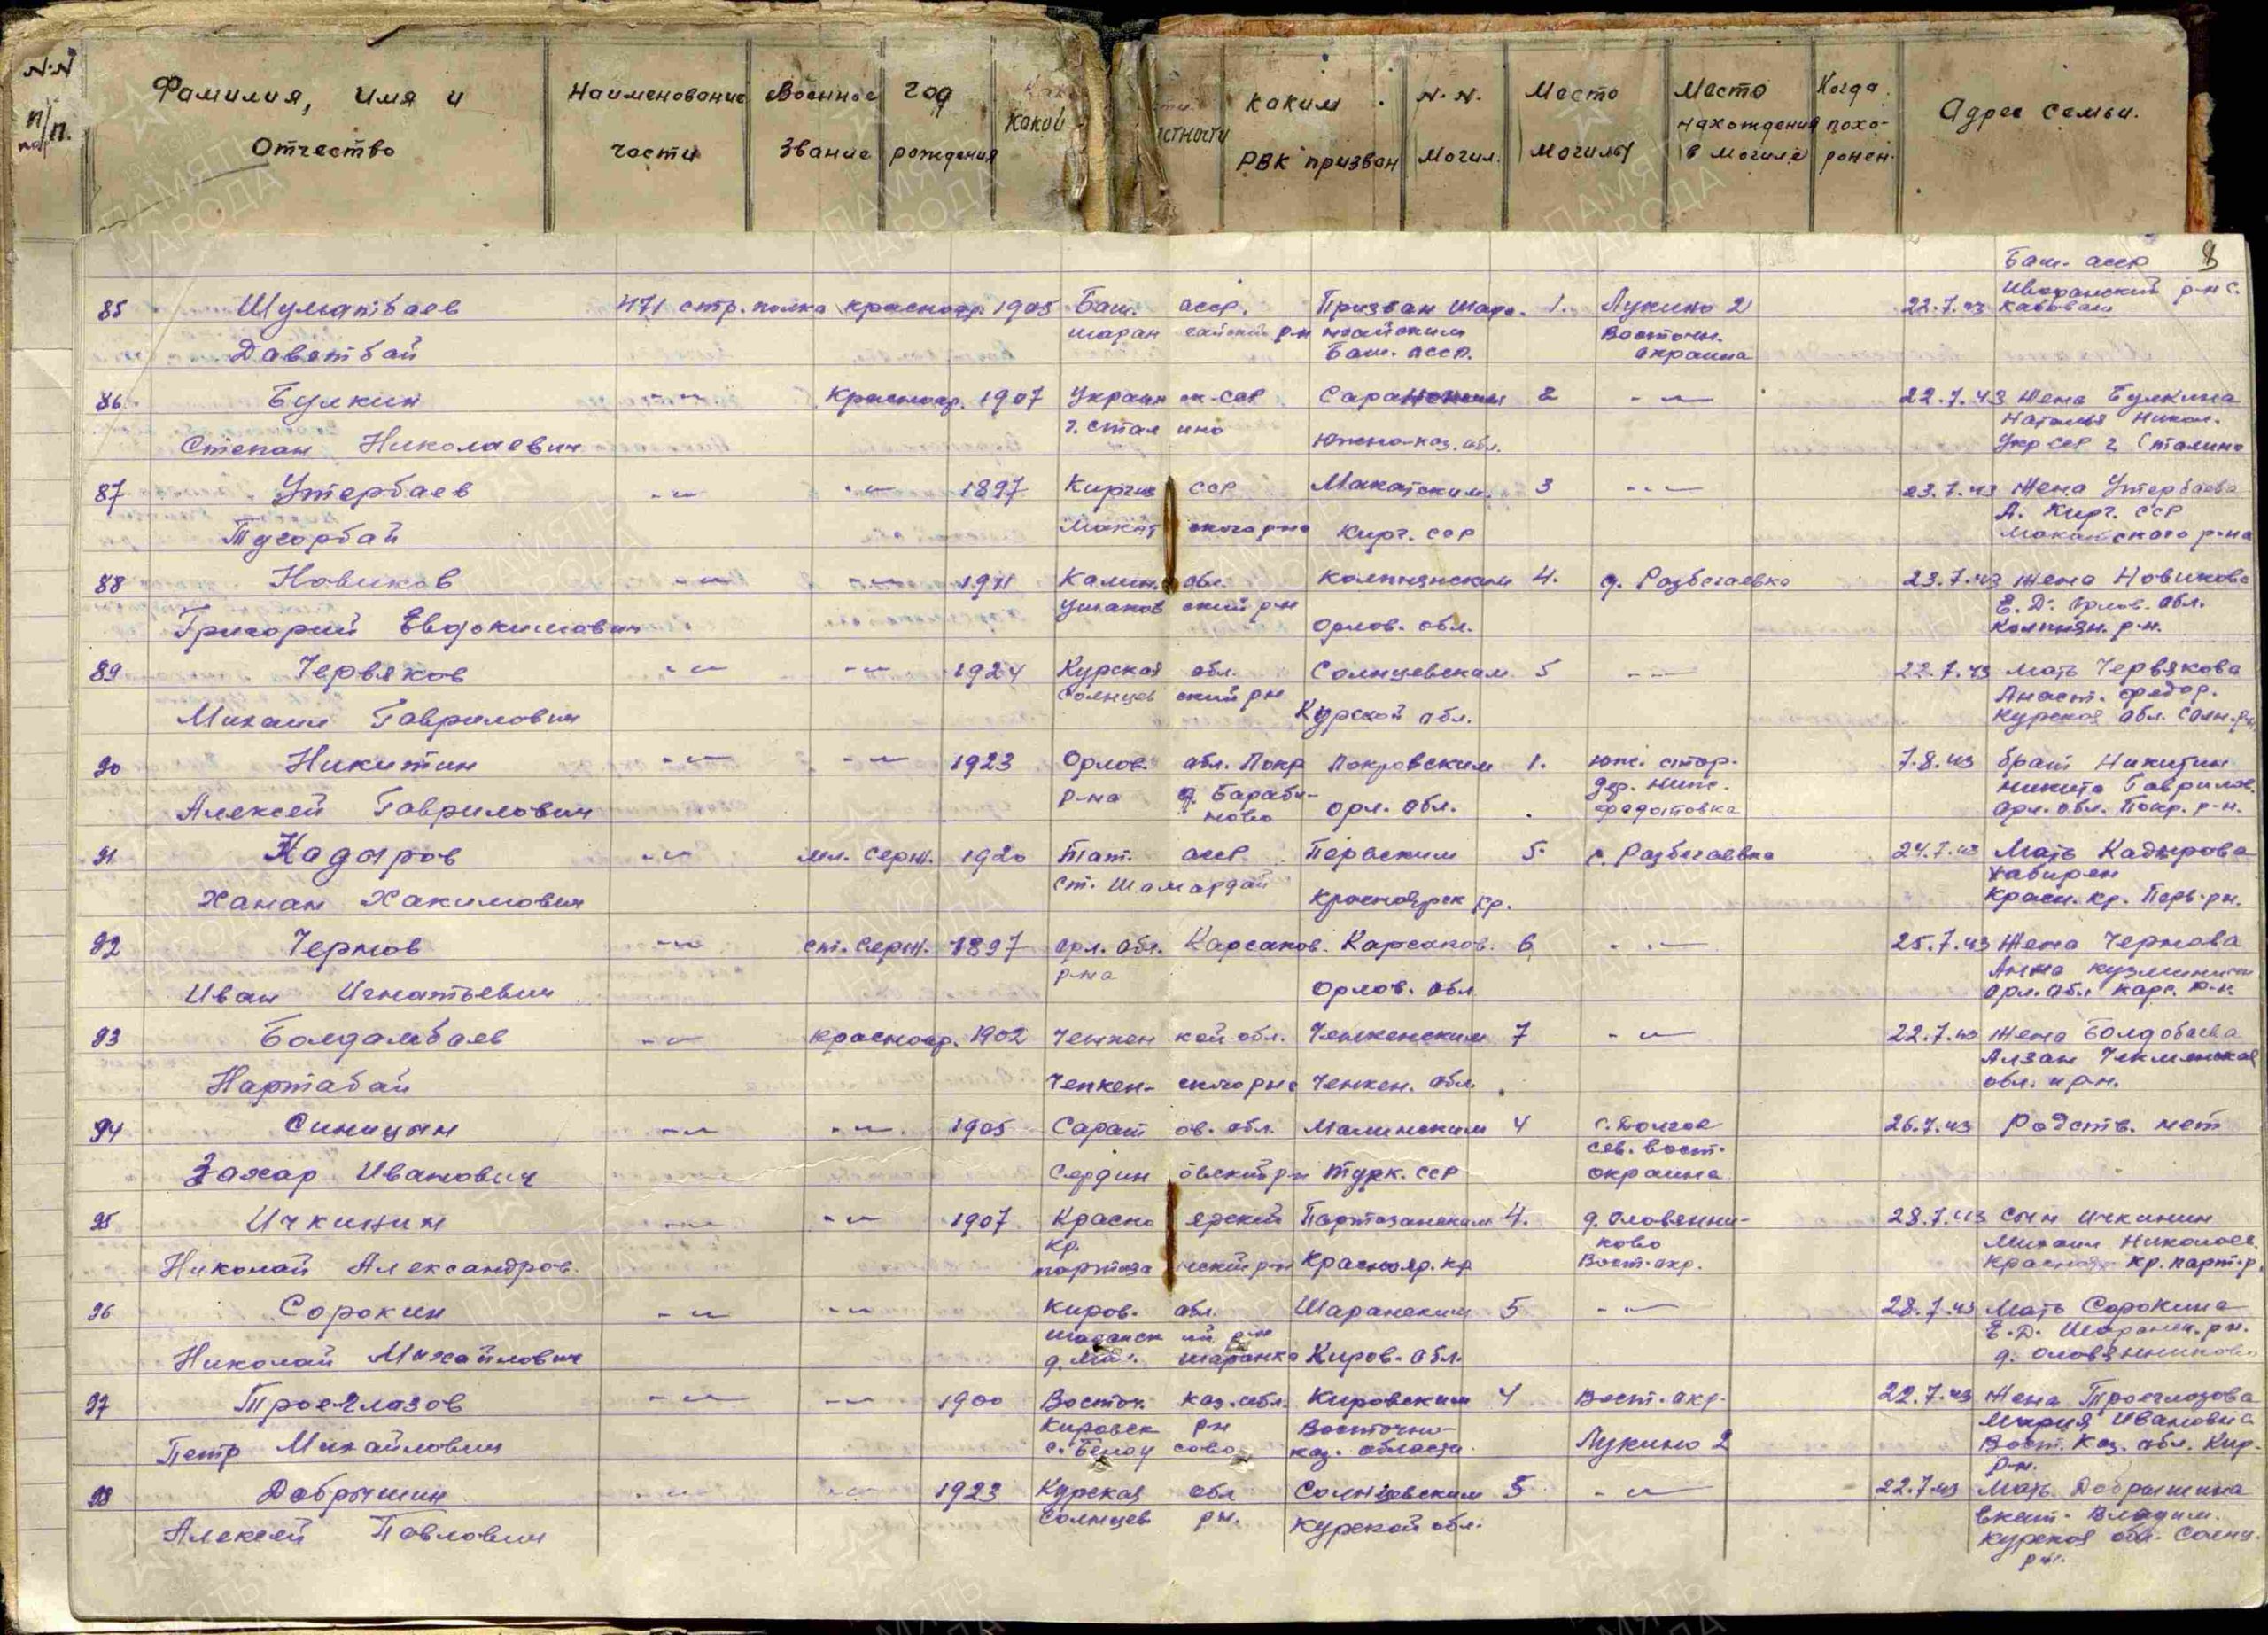 N.N п/п.
Фамилия, имя и Отчество
Наименование части
Военное звание
Год рождения
Какой местности
Каким РВК призван
N.N. Могил.
Место могилы
Место нахождения в могиле
Когда похоронен.
Адрес семьи.
9
Баш. асср
85 Шуматбаев 471 стр. полка красноар. 1905 Баш. асср. Призван Шара- 1. Лукино 2 22.7.43
Давлетбай шаран р-н Баш. асср. Восточн. окраина
86 Булкин -"- Красноар. 1907 Украин ск-ССР 2 -"- 22.7.43 Жена Булкина
Степан Николаевич г. Стал ино Южно-каз. обл. Наталья Никол.
Укр ССР г. Сталино
87 Утербаев -"- -"- 1897 Киргиз ССР Макатским. 3 -"- 23.7.43 Жена Утербаева
Тугорбай Макат ского р-на Кирг. ССР А. Кирг. ССР
Макатского р-на
88 Новиков -"- -"- 1911 Калин. обл. Колпнянским 4. д. Разбегаевка 23.7.43 Жена Новикова
Григорий Евдокимович Ушаков ский р-н Орлов. обл. Е. Д. Орлов. обл.
Колпнян. р-н.
89 Червяков -"- -"- 1924 Курская обл. Солнцевским 5 -"- 22.7.43 Мать Червякова
Михаил Гаврилович Солнцев ский р-н Курской обл. Анаст. Федор.
Курская обл. Солн. р-н
90 Никитин -"- -"- 1923 Орлов. обл. Покр Покровским 1. юж. стор. 7.8.43 брат Никитин
Алексей Гаврилович р-на д. Бараби-ново Орл. обл. дер. Ниж. Федотовка Никита Гаврилов.
Орл. обл. Покр. р-н.
91 Кадыров -"- мл. серж. 1920 Тат. асср. Перовским 5 с. Разбегаевка 24.7.43 Мать Кадырова
Ханан Хакимович ст. Шамардан Красноярск кр. Хабирен
Красн. кр. Перв. р-н.
92 Чернов -"- ст. серж. 1897 Орл. обл. Карсаков. Карсаков. 6 -"- 25.7.43 Жена Чернова
Иван Игнатьевич р-на Орлов. обл Анна
Орл. обл Карс. р-н.
93 Болдамбаев -"- красноар. 1902 Чемкен кой обл. Чемкенским 7 -"- 22.7.43 Жена Болдобаева
Нартабай Чемкен- ского р-на Чемкен. обл. Алзан
обл. и р-н.
94 Синицын -"- -"- 1905 Сарат ов. обл. 4 с. Долгое 26.7.43 Родств. нет
Захар Иванович Сердин овский р-н Турк. ССР сев. вост. окраина
95 Ичкинин -"- -"- 1907 Красно ярский Партизанским 4. д. Оловянни-ково 28.7.43 Сын Ичкинин
Николай Александров. кр. партиза нский р-н Краснояр. кр Вост. окр. Михаил Николаев.
Краснояр. кр. парт. р.
96 Сорокин -"- -"- Киров. обл. Шаранским 5 -"- 28.7.43 Мать Сорокина
Николай Михайлович Шаранск ий р-н Киров. обл. Е. Д. Шаранск. р-н.
д. Мал. Шаранка д. Оловянниково
97 Троеглазов -"- -"- 1900 Восточ. каз. обл. Кировским 4 Вост. окр. 22.7.43 Жена Троеглазова
Петр Михайлович Кировск р-н Восточно- Лукино 2 Мария Ивановна
с. Белоу сово каз. области. Вост. Каз. обл. Кир. р-н.
98 Добрышин -"- -"- 1923 Курская обл Солнцевским 5 -"- 22.7.43 Мать Добрышина
Алексей Павлович Солнцев р-н. Курской обл. Екат. Владим.
Курская обл. Солнц. р-н.
ПАМЯТЬ НАРОДА